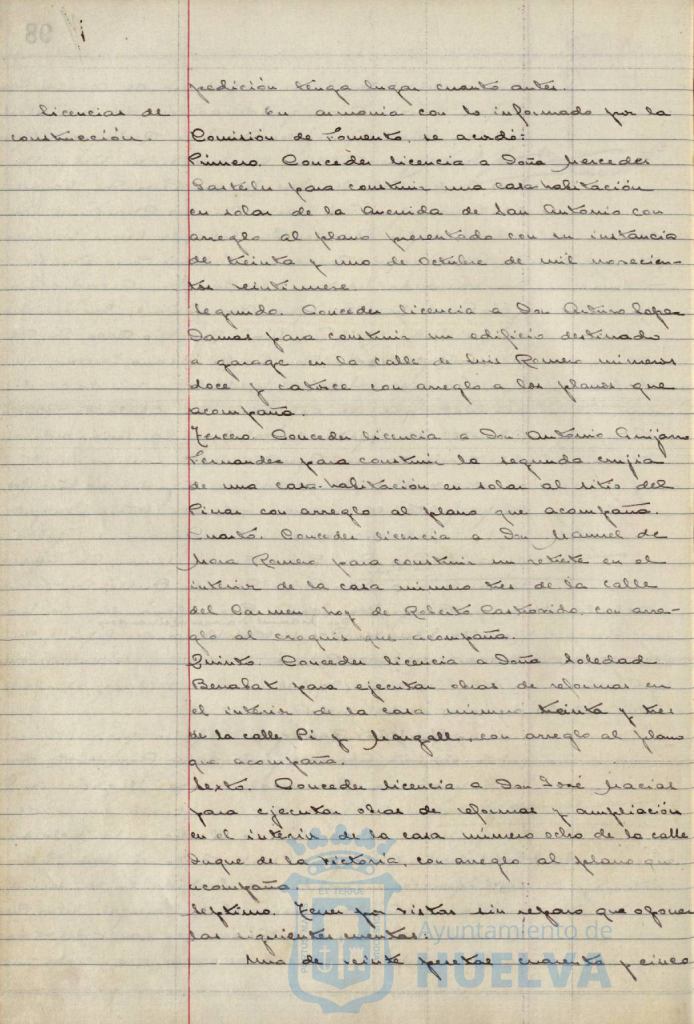 98
pedición tenga lugar cuanto antes.
Licencias de
construcción.
En armonia con lo informado por la
Comisión de Fomento, se acordó:
Primero. Conceder licencia a Doña Mercedes
para construir una casa-habitación
en solar de la Avenida de San Antonio con
arreglo al plano presentado con su instancia
de treinta y uno de Octubre de mil novecien-
tos veintinueve.
Segundo. Conceder licencia a Don Arturo Lopez
Damas para construir un edificio destinado
a garage en la calle de Luis Romero números
doce y catorce con arreglo a los planos que
acompaña.
Tercero. Conceder licencia a Don Antonio
Fernandez para construir la segunda crujia
de una casa-habitación en solar al sitio del
Pinar con arreglo al plano que acompaña.
Cuarto. Conceder licencia a Don Manuel de
Mora Romero para construir un retrete en el
interior de la casa número tres de la calle
del Carmen hoy de Roberto Castrovido, con arre-
glo al croquis que acompaña.
Quinto. Conceder licencia a Doña Soledad
Benabat para ejecutar obras de reformas en
el interior de la casa número treinta y tres
de la calle Pi y Margall, con arreglo al plano
que acompaña.
Sexto. Conceder licencia a Don José Macias
para ejecutar obras de reformas y ampliación
en el interior de la casa número ocho de la calle
Duque de la Victoria, con arreglo al plano que
acompaña.
Septimo. Tener por vistas sin reparo que oponer
las siguientes cuentas:
Una de veinte pesetas cuarenta y cinco
Ayuntamiento de
HUELVA